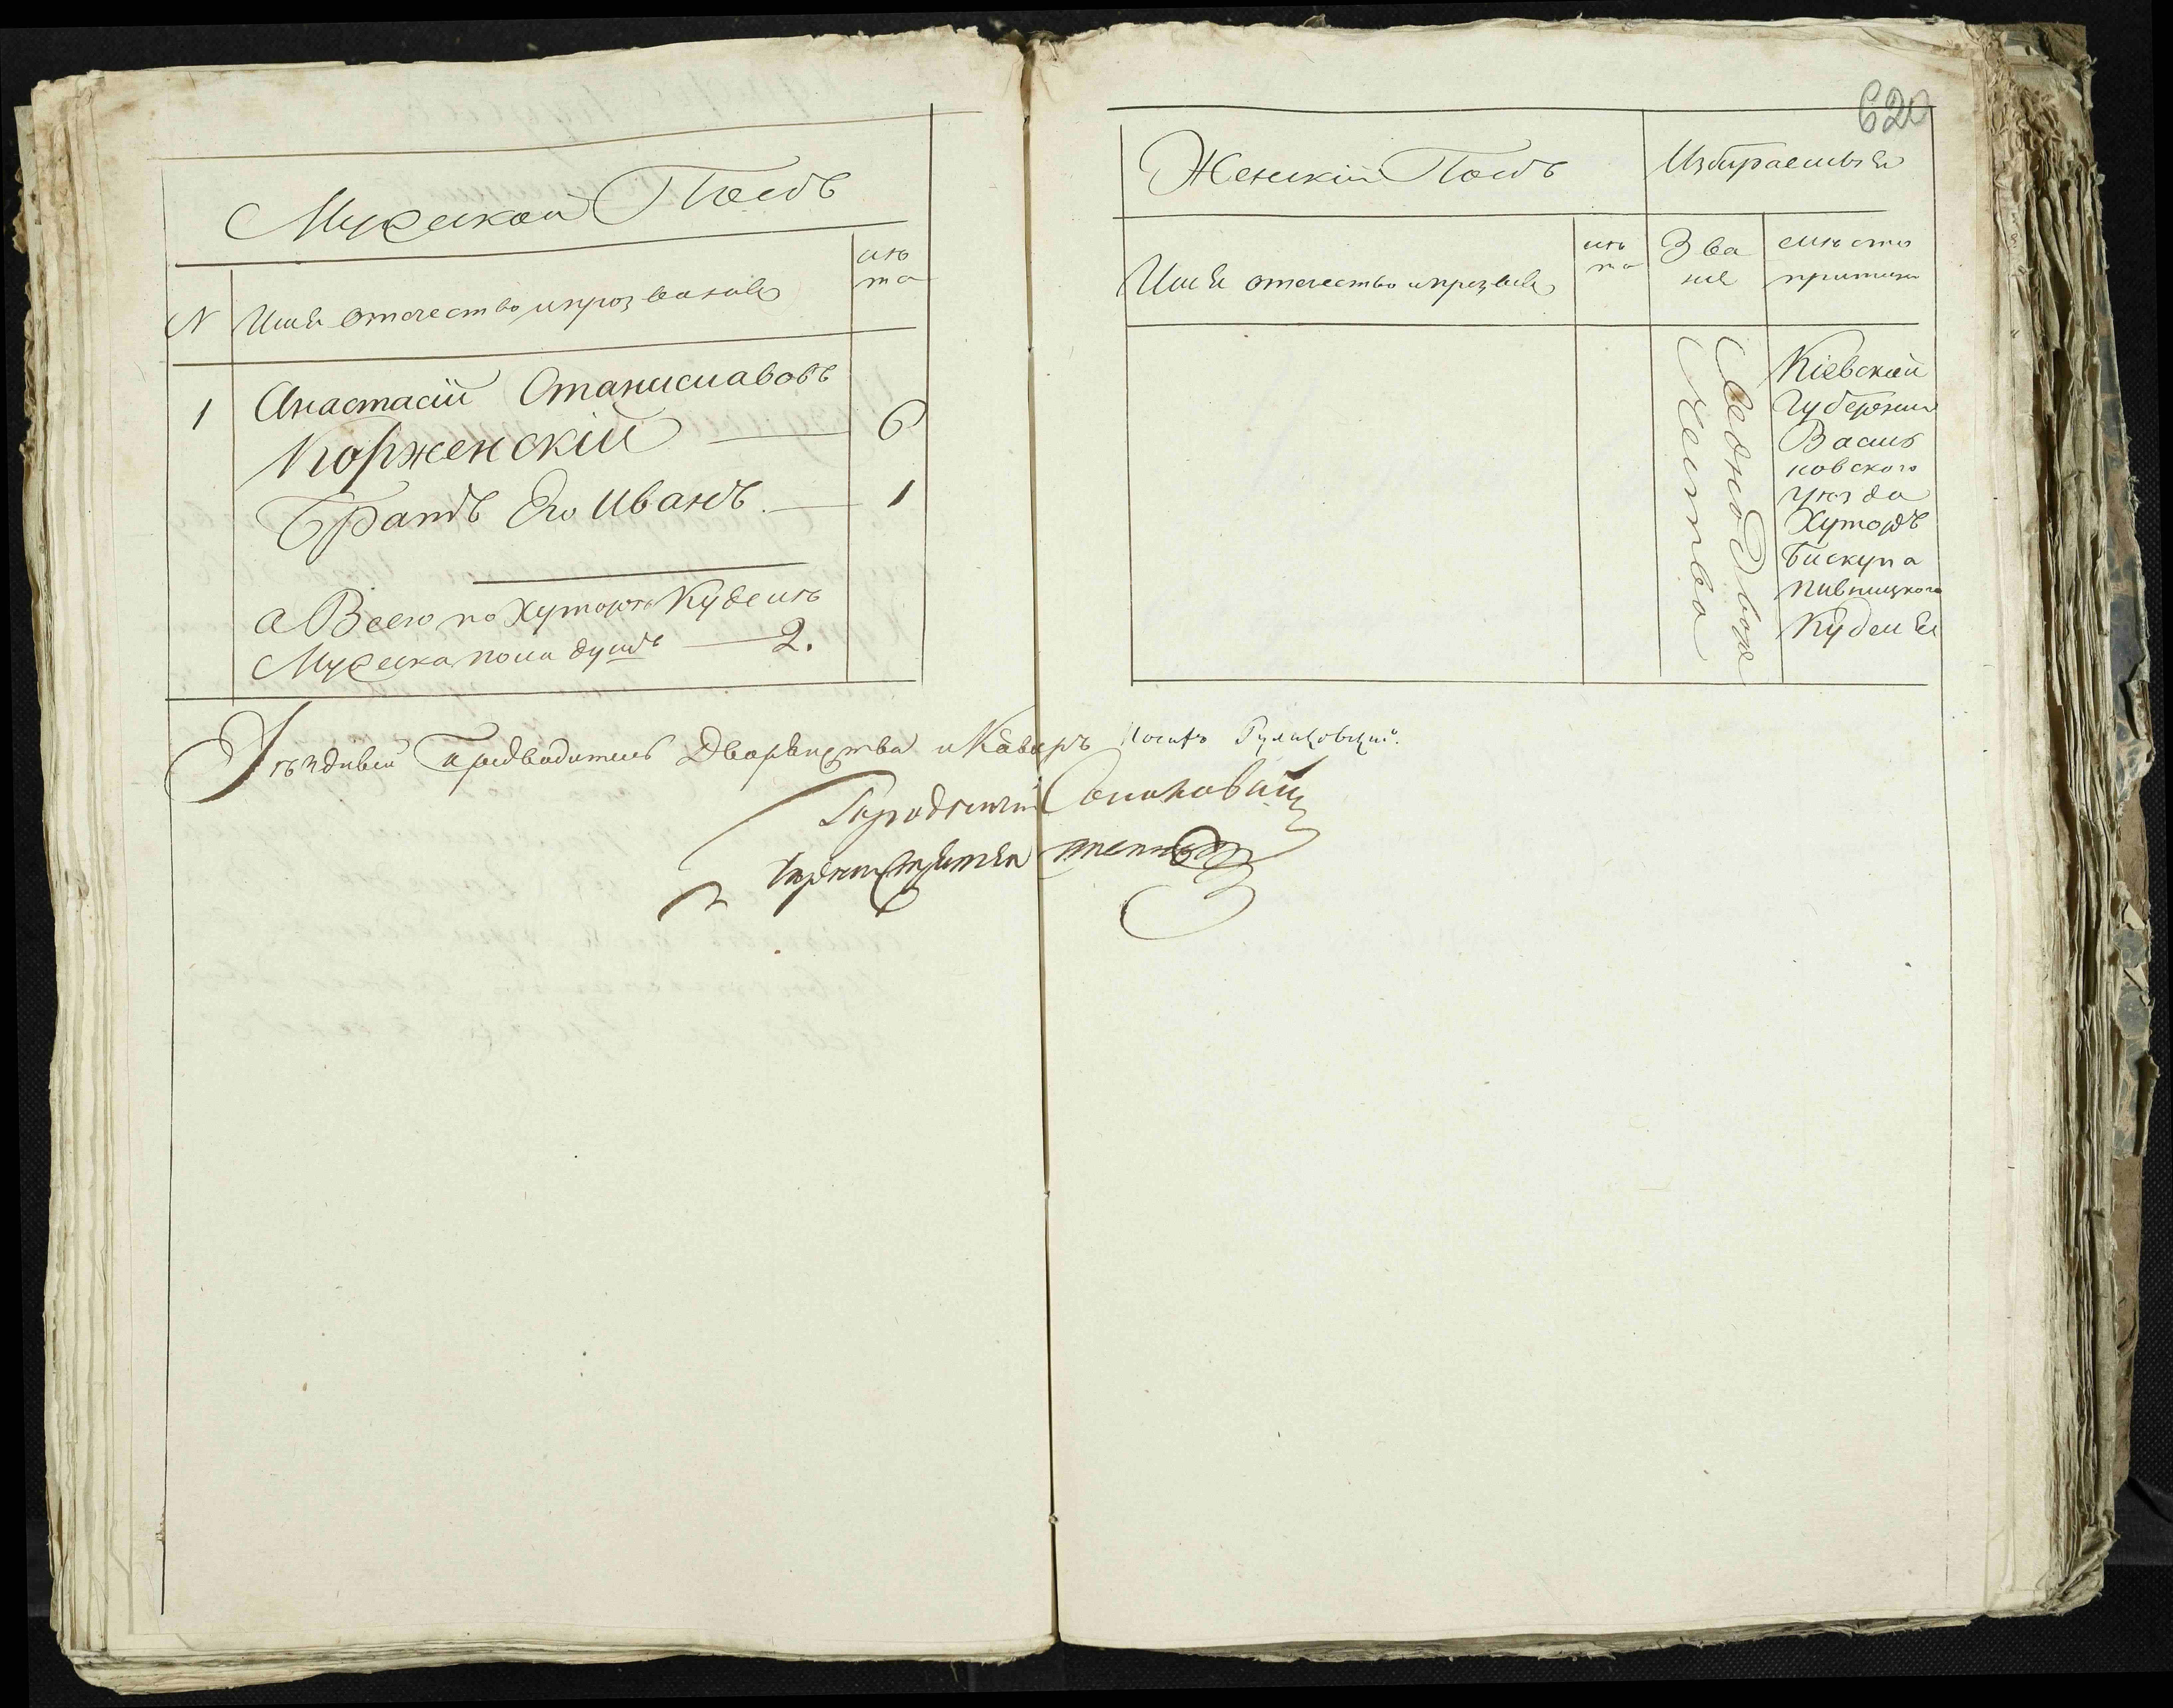 Мужескай Полъ
N
Имя отечество и прозвание
лѣ
та
1
Анастасій Станиславовъ
Корженскій — 6
Братъ Его Иванъ. — 1
а Всего по Хуторѣ Кудемѣ
Мужеска пола душъ — 2.
620
Женскій Полъ
Избираемыя
Имя отечество и прозвие
лѣ
та
Зва
ние
мѣсто
приписки
Однодвор
чества
Кіевскай
Губернии
Василь
ковского
уѣзда
Хуторъ
Бискупа
Пивницкого
Кудемя
Уѣздный Предводитель Дворянства и Каваеръ Иосифъ Руликовскій.
Городничій